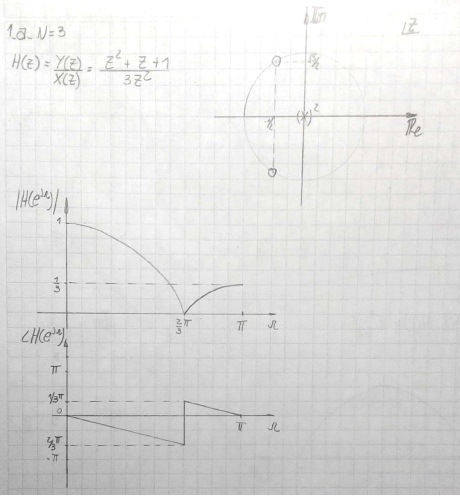 1.a. N=3
H(z) = Y(z)/X(z) = z² + z + 1 / 3z²
Im
z
√3/2
(X)²
Re
|H(e^jΩ)|
1
1/3
2/3 π
π
Ω
∠H(e^jΩ)
π
1/3π
0
π
Ω
2/3π
-π